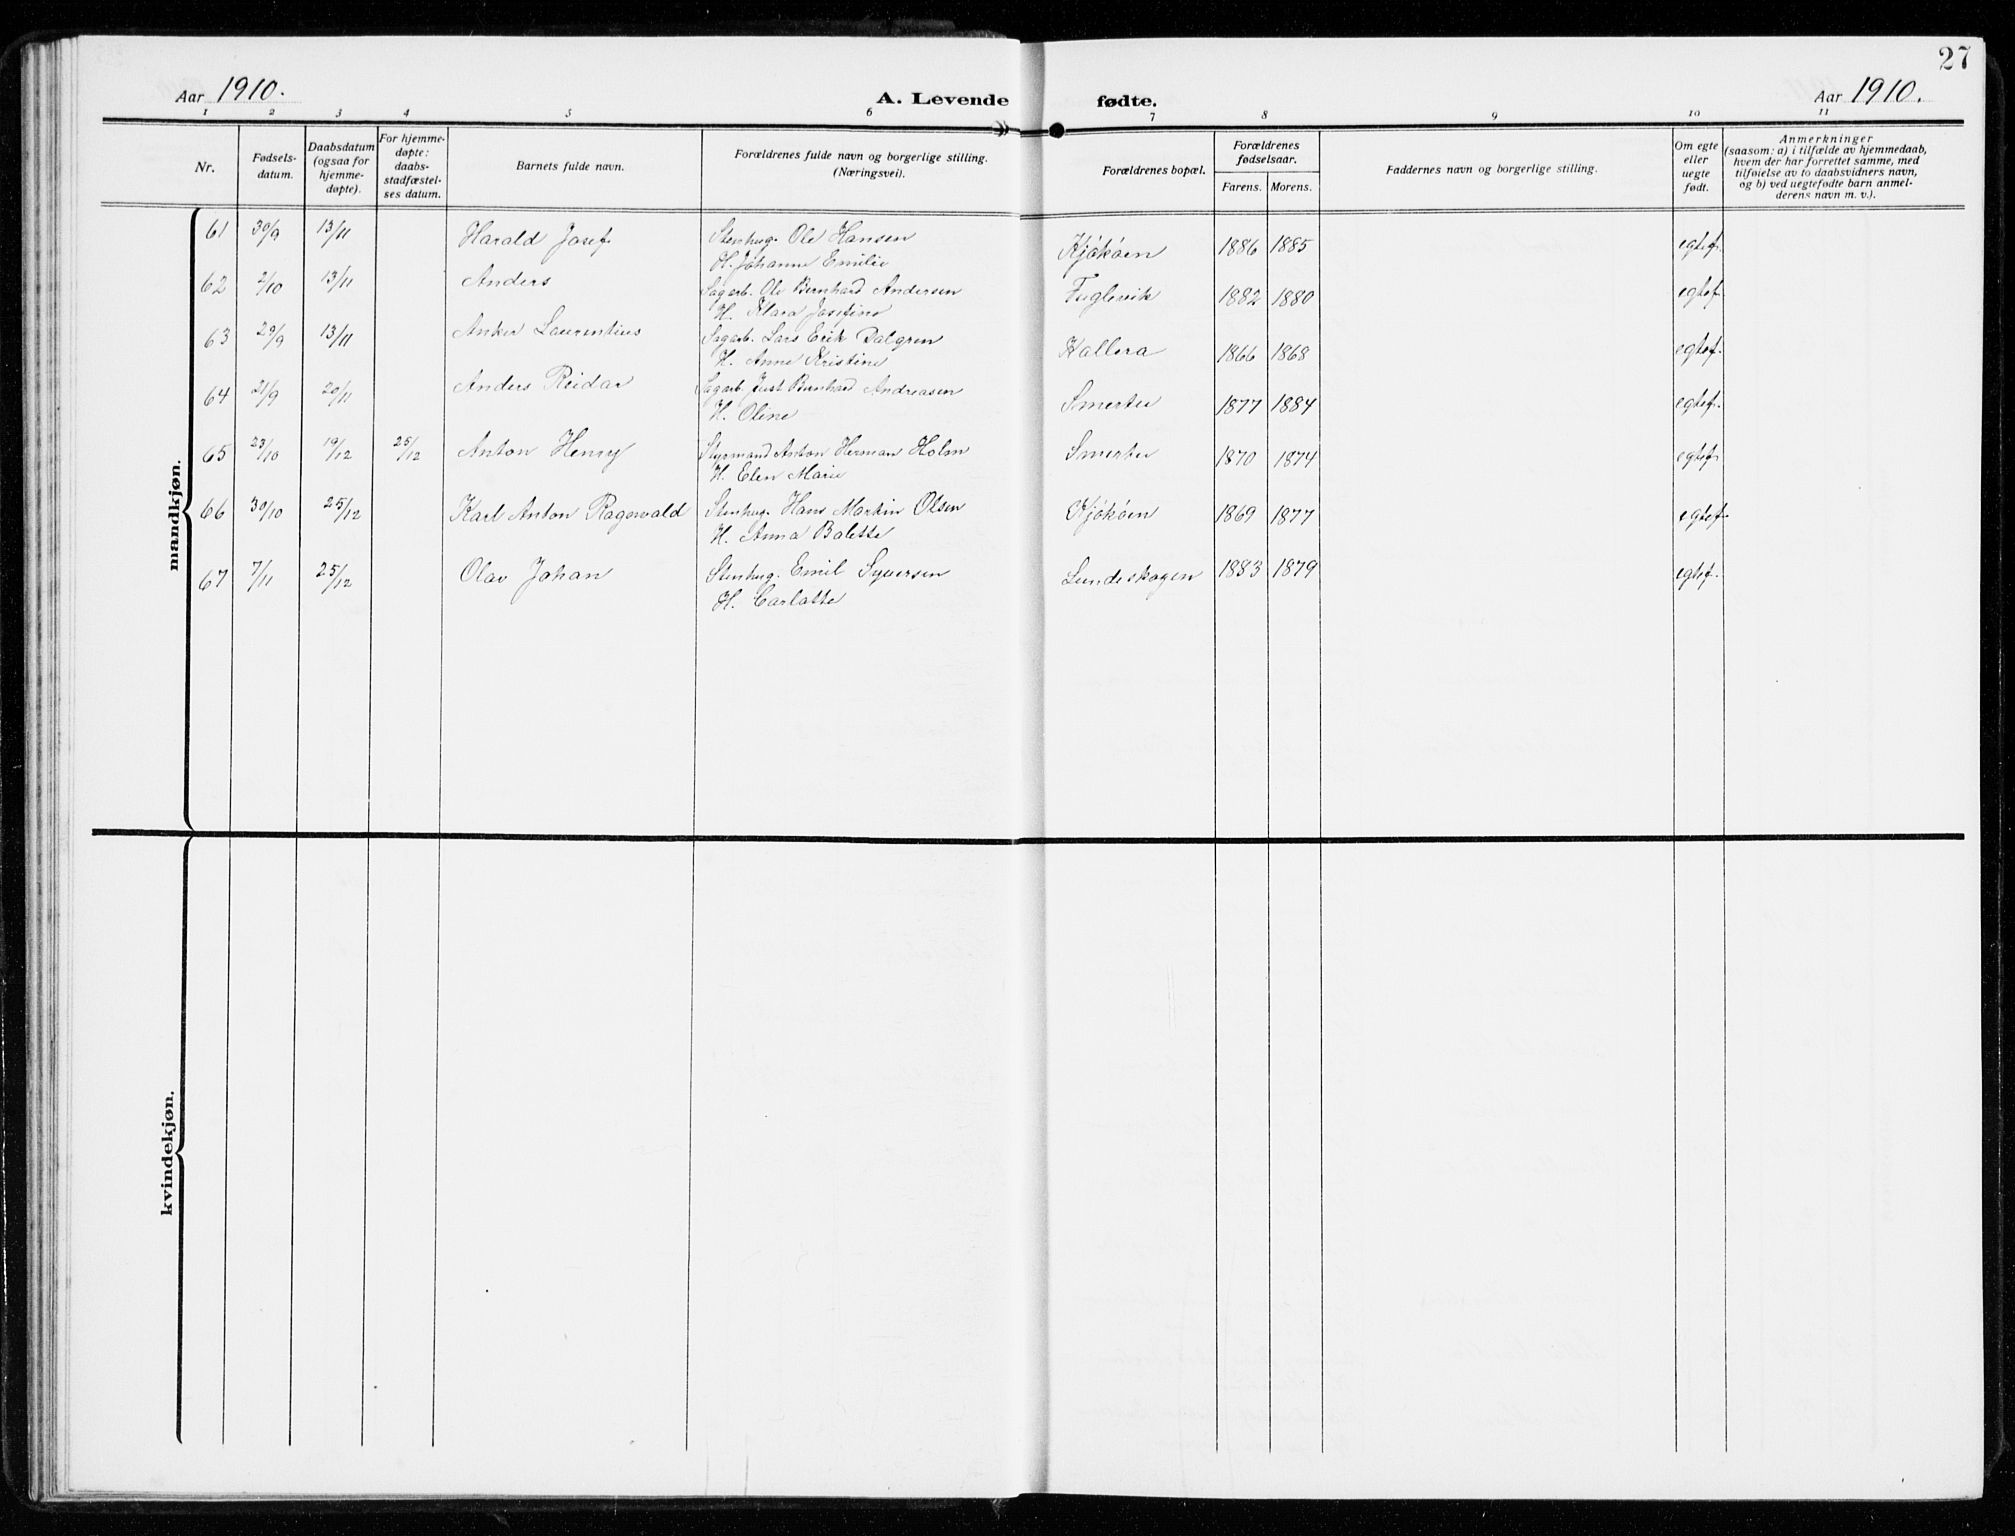 27
Aar 1910.
A. Levende fødte.
Aar 1910.
1 2 3 4 5 6 7 8 9 10 11
Nr.
Fødsels-
datum.
Daabsdatum
(ogsaa for
hjemme-
døpte).
For hjemme-
døpte:
daabs-
stadfæstel-
ses datum.
Barnets fulde navn.
Forældrenes fulde navn og borgerlige stilling.
(Næringsvei).
Forældrenes bopæl.
Forældrenes
fødselsaar.
Farens. Morens.
Faddernes navn og borgerlige stilling.
Om egte
eller
uegte
født.
Anmerkninger
(saasom: a) i tilfælde av hjemmedaab,
hvem der har forrettet samme, med
tilføielse av to daabsvidners navn,
og b) ved uegtefødte barn anmel-
derens navn m. v.).
mandkjøn.
61 30/9 13/11 Harald Josef Stenhug. Ole Hansen Kjøkøen 1886 1885 egtef.
H. Johanne Emilie
62 2/10 13/11 Anders Sagarb. Ole Bernhard Andersen Fuglevik 1882 1880 egtef.
H. Klara Josefine
63 29/9 13/11 Anker Laurentius Sagarb. Lars Erik Dalgren Kallera 1866 1868 egtef.
H. Anne Kristine
64 21/9 20/11 Anders Reidar Sagarb. Just Bernhard Andreasen Smertu 1877 1884 egtef.
H. Oline
65 23/10 19/12 25/12 Anton Henry Styrmand Anton Herman Holm Smertu 1870 1874 egtef.
H. Elen Marie
66 30/10 25/12 Karl Anton Ragnvald Stenhug. Hans Martin Olsen Kjøkøen 1869 1877 egtef.
H. Anna Balette
67 7/11 25/12 Olav Johan Stenhug. Emil Syversen Lundeskogen 1883 1879 egtef.
H. Carlatte
kvindekjøn.